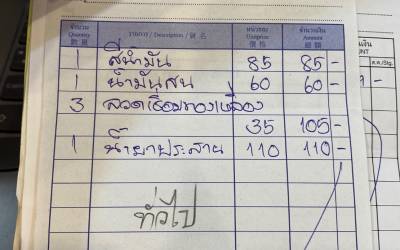 จำนวน รายการ / Description / 品名 หน่วยละ จำนวนเงิน
Quantity Unit price Amount
數量 價格 總額
1 สีน้ำมัน 85 85-
1 น้ำมันสน 60 60-
3 ลวดเชื่อมทองเหลือง
35 105-
1 น้ำยาประสาน 110 110-
ทั่วไป